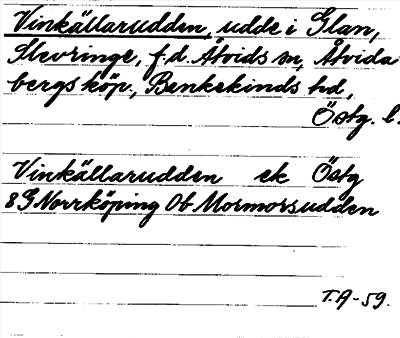 Vinkällarudden, udde i Glan,
Slevringe, f.d. Åtvids sn, Åtvida
bergs köp., Bankekinds hd,
Östg. l.
Vinkällarudden ek Östg
8G Norrköping Ob Mormorsudden
T.A-59.